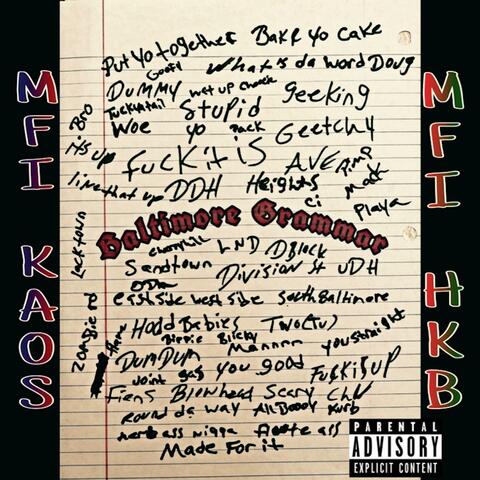 MFI KAOS
MFI HKB
Put Yo together Bake yo Cake
Goofy What's da word Doug
Dummy wet up
Stupid geeking
Bro Woe yo Pack Geetchy
its up fuck it is AVE Pimp
line that up DDH Heights Mack
ci Playa
Baltimore Grammar
Locktown
Cherryhill LND DBlock
Sandtown Division St UDH
ODM
eastside west side South Baltimore
Zombie
Hood Babies Two(Tu)
Blicky Mannnn you straight
DumDum
joint gas you good Fuck is up
Fiens Blowhead Scary
round da way All Doody Kurb
ass nigga ass
Made For it
PARENTAL
ADVISORY
EXPLICIT CONTENT